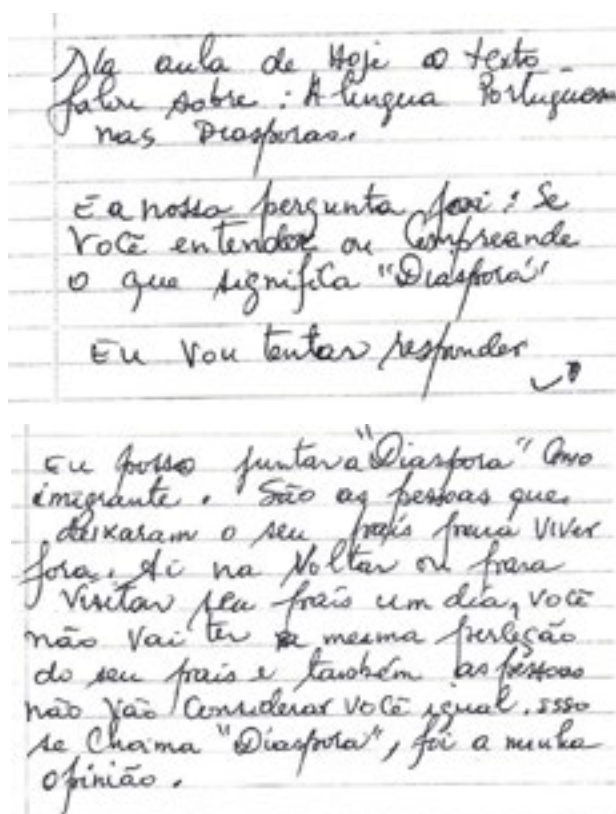 Na aula de Hoje o texto
falou sobre: A língua Portuguesa
nas Diasporas.
E a nossa pergunta foi: Se
Você entender ou Compreende
o que significa "Diaspora"
Eu Vou tentar responder
Eu posso juntar a "Diaspora" Como
imigrante. São as pessoas que
deixaram o seu país para Viver
fora. Ai na Voltar ou para
Visitar seu país um dia, você
não Vai ter a mesma perleção
do seu país e também as pessoas
não Vão Considerar Você igual. isso
se Chama "Diaspora", foi a minha
opinião.